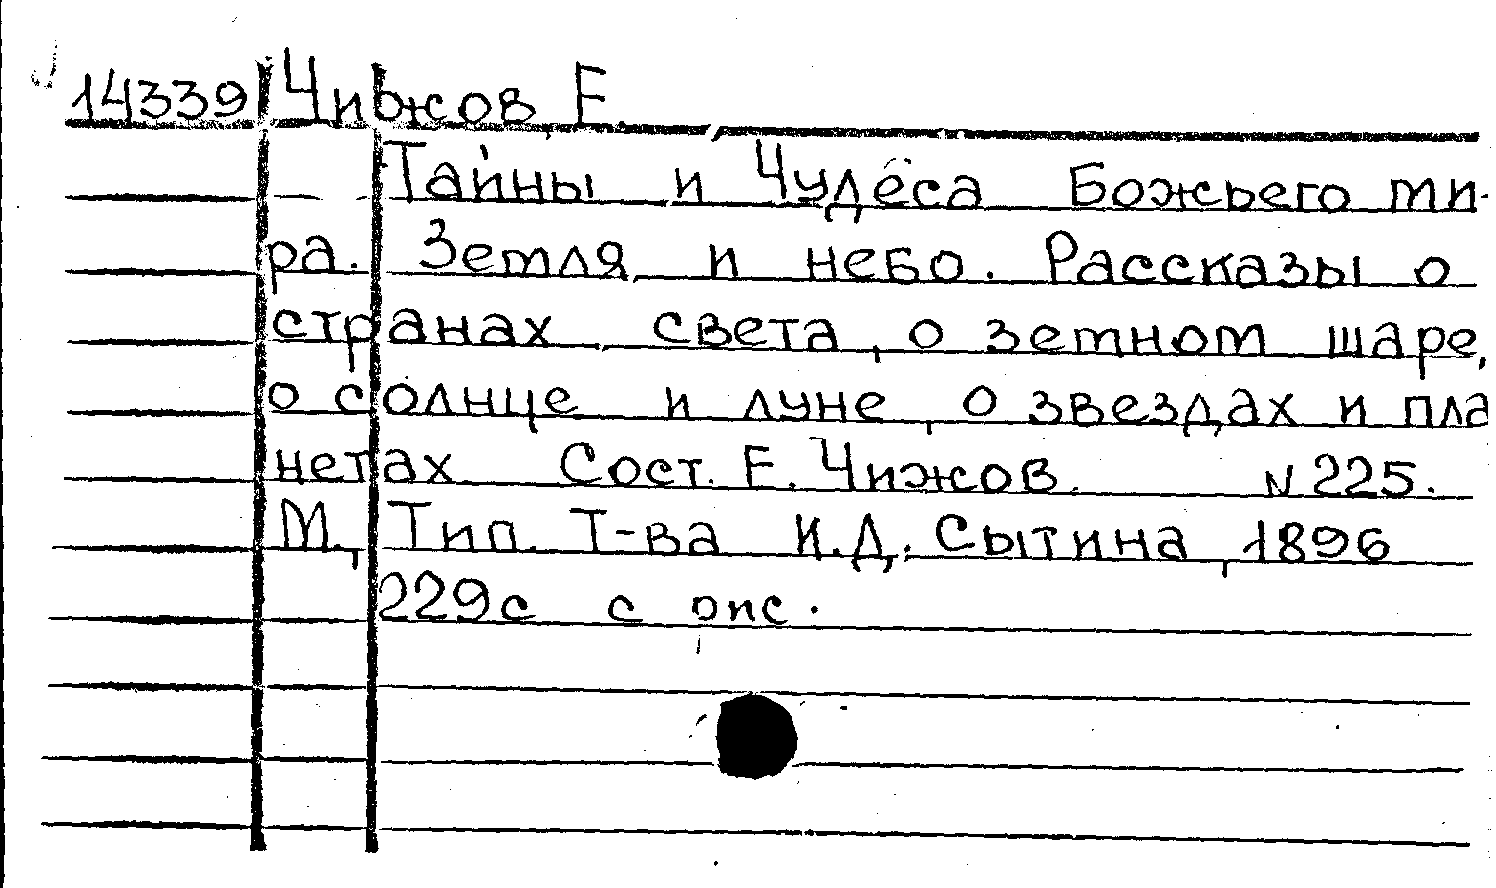 14339 Чижов Е.
Тайны и Чудеса Божьего ми-
ра. Земля и небо. Рассказы о
странах света, о земном шаре,
о солнце и луне, о звездах и пла
нетах Сост. Е. Чижов. N 225.
М., Тип. Т-ва И.Д. Сытина, 1896
229с с рис.